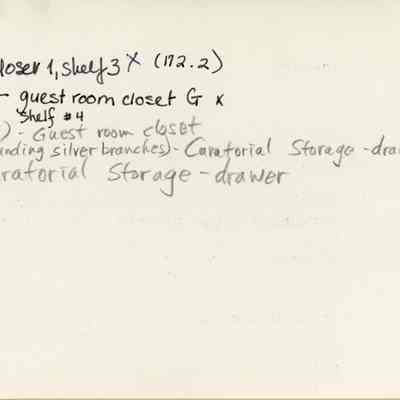 loser 1, shelf 3 X (172.2)
- guest room closet G x
shelf #4
) - Guest room closet
unding silver branches) - Curatorial Storage - dra
ratorial Storage - drawer